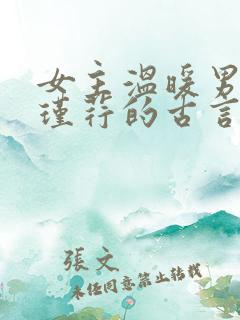 女主温暖男
瑾荇的古言
張文
未经同意禁止转载